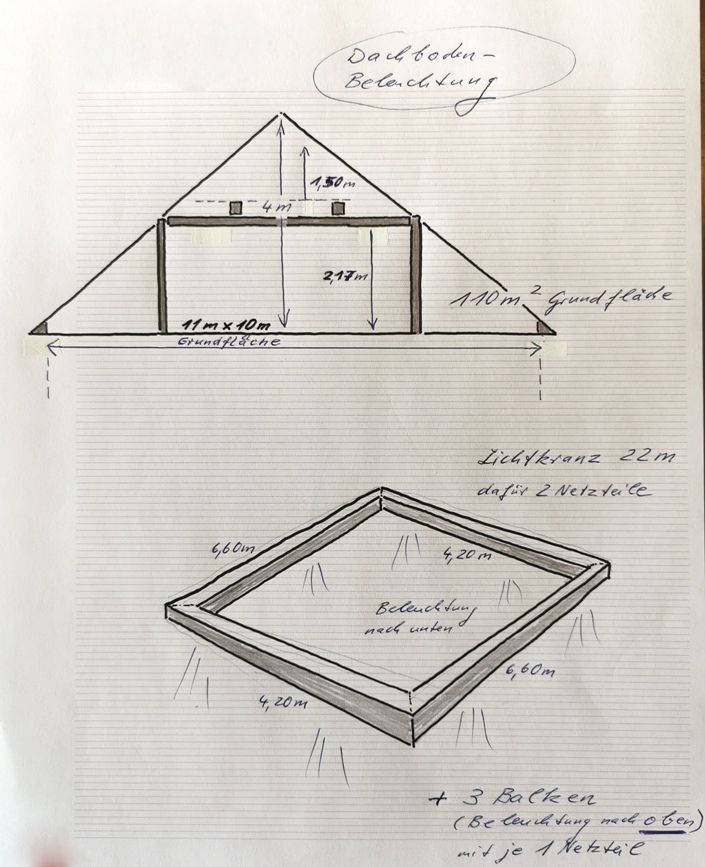 Dachboden-
Beleuchtung
1,50m
4m
2,17m
110m² Grundfläche
11m x 10m
Grundfläche
Lichtkranz 22m
dafür 2 Netzteile
6,60m
4,20m
Beleuchtung
nach unten
6,60m
4,20m
+ 3 Balken
(Beleuchtung nach oben)
mit je 1 Netzteil